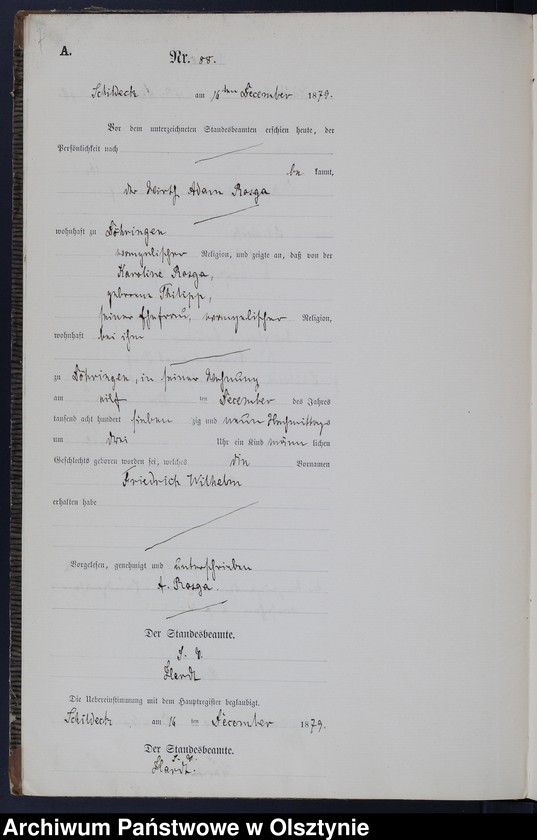 A.
Nr. 88.
Schildeck am 16ten December 1879.
Vor dem unterzeichneten Standesbeamten erschien heute, der
Persönlichkeit nach
be kannt,
der Wirth Adam Rosga
wohnhaft zu Döhringen
evangelischer Religion, und zeigte an, daß von der
Karoline Rosga,
geborene Philipp,
seiner Ehefrau, evangelischer Religion,
wohnhaft bei ihm
zu Döhringen, in seiner Wohnung
am eilf ten December des Jahres
tausend acht hundert sieben zig und neun Nachmittags
um drei Uhr ein Kind männ lichen
Geschlechts geboren worden sei, welches die Vornamen
Friedrich Wilhelm
erhalten habe
Vorgelesen, genehmigt und unterschrieben
A. Rosga.
Der Standesbeamte.
I. V.
Hardt
Die Uebereinstimmung mit dem Hauptregister beglaubigt.
Schildeck am 16 ten December 1879.
Der Standesbeamte.
I. V.
Hardt.
Archiwum Państwowe w Olsztynie